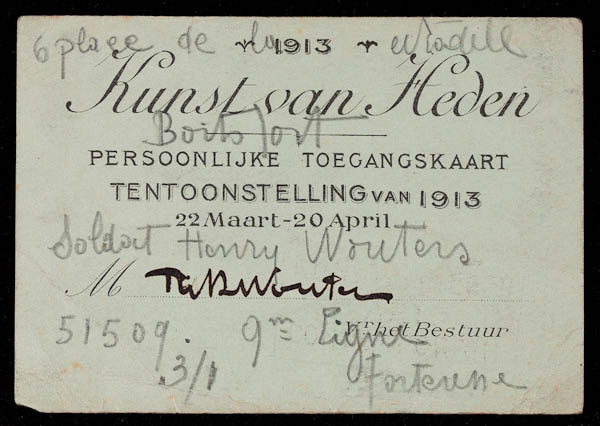 6 place de la citadelle
1913
Kunst van Heden
Boitsfort
PERSOONLIJKE TOEGANGSKAART
TENTOONSTELLING VAN 1913
22 Maart-20 April
Soldat Henry Wouters
M Wouters
51509. 9me Ligne
Vr het Bestuur
3/1 Forteresse